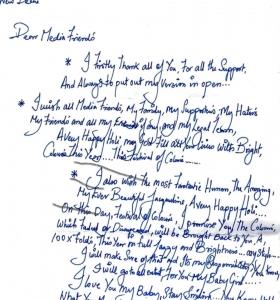 New Delhi
Dear Media Friends
* I Firstly Thank all of You, For all the Support.
And Always to put out my Version in open...
* I wish all Media Friends, My Family, My Supporters, My Haters
My Friends and all my Enemies if any, and my Legal Team,
A Very Happy Holi, may God Fill all Your Lives With Bright,
Colours This Year... This Festival of Colours....
* I also wish the most Fantastic Human, The Amazing,
My Ever Beautiful Jacqueline A Very Happy Holi..
On this Day, Festival of Colours, I promise You The Colours
Which Faded or Disappeared, will be Brought Back to You A,
100 x Folds, This Year in Full Jazzy and Brightness... my Style...
I will make Sure of that and Its my Responsibility You Know
I will go to all extent For You My Baby Girl....
I Love You My Baby, Stay Smiling...